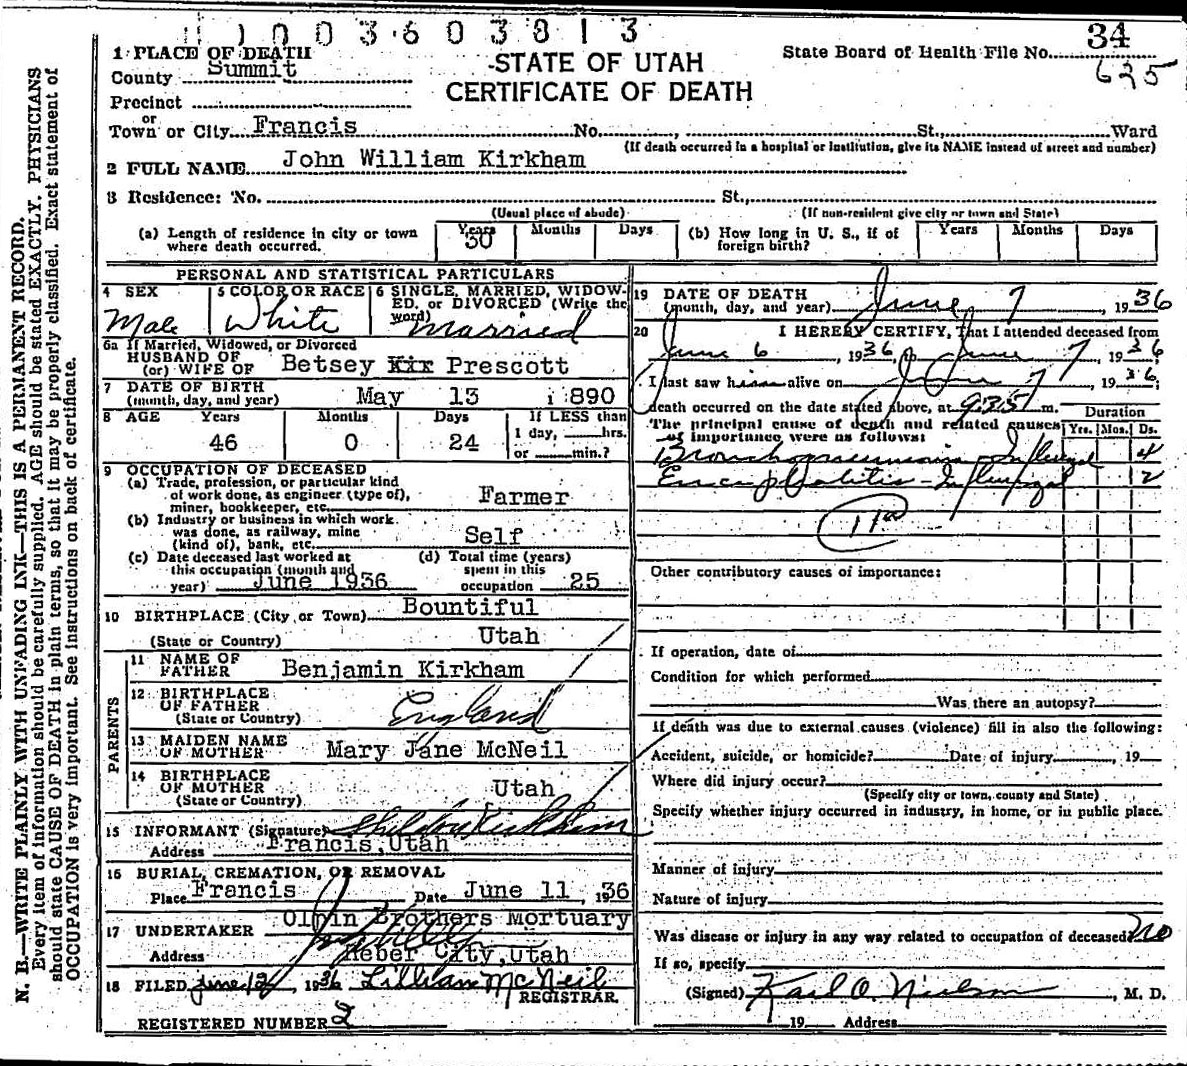 1003603813
1 PLACE OF DEATH
STATE OF UTAH
CERTIFICATE OF DEATH
State Board of Health File No. 34
625
County Summit
Precinct
or
Town or City Francis No. , St., Ward
(If death occurred in a hospital or institution, give its NAME instead of street and number)
2 FULL NAME John William Kirkham
3 Residence: No. St.,
(Usual place of abode) (If non-resident give city or town and State)
(a) Length of residence in city or town where death occurred. Years 30 Months Days
(b) How long in U. S., if of foreign birth? Years Months Days
PERSONAL AND STATISTICAL PARTICULARS
4 SEX Male
5 COLOR OR RACE White
6 SINGLE, MARRIED, WIDOWED, or DIVORCED (Write the word) Married
6a If Married, Widowed, or Divorced
HUSBAND OF
(or) WIFE OF Betsey Kix Prescott
7 DATE OF BIRTH
(month, day, and year) May 13 1890
8 AGE Years 46 Months 0 Days 24 If LESS than
1 day, hrs.
or min.?
9 OCCUPATION OF DECEASED
(a) Trade, profession, or particular kind
of work done, as engineer (type of),
miner, bookkeeper, etc. Farmer
(b) Industry or business in which work
was done, as railway, mine
(kind of), bank, etc. Self
(c) Date deceased last worked at
this occupation (month and
year) June 1936
(d) Total time (years)
spent in this
occupation 25
10 BIRTHPLACE (City or Town) Bountiful
(State or Country) Utah
PARENTS
11 NAME OF
FATHER Benjamin Kirkham
12 BIRTHPLACE
OF FATHER
(State or Country) England
13 MAIDEN NAME
OF MOTHER Mary Jane McNeil
14 BIRTHPLACE
OF MOTHER
(State or Country) Utah
15 INFORMANT (Signature) Sheldon Kirkham
Address Francis, Utah
16 BURIAL, CREMATION, OR REMOVAL
Place Francis Date June 11, 1936
17 UNDERTAKER Olpin Brothers Mortuary
Address Heber City, Utah
18 FILED June 12, 1936 Lillian McNeil
REGISTRAR
REGISTERED NUMBER 2
19 DATE OF DEATH
(month, day, and year) June 7, 1936
20 I HEREBY CERTIFY, That I attended deceased from
June 6, 1936, to June 7, 1936
I last saw him alive on June 7, 1936;
death occurred on the date stated above, at 9:35 m.
The principal cause of death and related causes
of importance were as follows:
Duration
Yrs. Mos. Ds.
Bronchopneumonia - Influenzal 4
Encephalitis - Influenzal 2
11a
Other contributory causes of importance:
If operation, date of
Condition for which performed
Was there an autopsy?
If death was due to external causes (violence) fill in also the following:
Accident, suicide, or homicide? Date of injury , 19
Where did injury occur?
(Specify city or town, county and State)
Specify whether injury occurred in industry, in home, or in public place.
Manner of injury
Nature of injury
Was disease or injury in any way related to occupation of deceased? No
If so, specify
(Signed) Karl O. Nielson, M. D.
19 Address
N. B.—WRITE PLAINLY WITH UNFADING INK—THIS IS A PERMANENT RECORD.
Every item of information should be carefully supplied. AGE should be stated EXACTLY. PHYSICIANS
should state CAUSE OF DEATH in plain terms, so that it may be properly classified. Exact statement of
OCCUPATION is very important. See instructions on back of certificate.